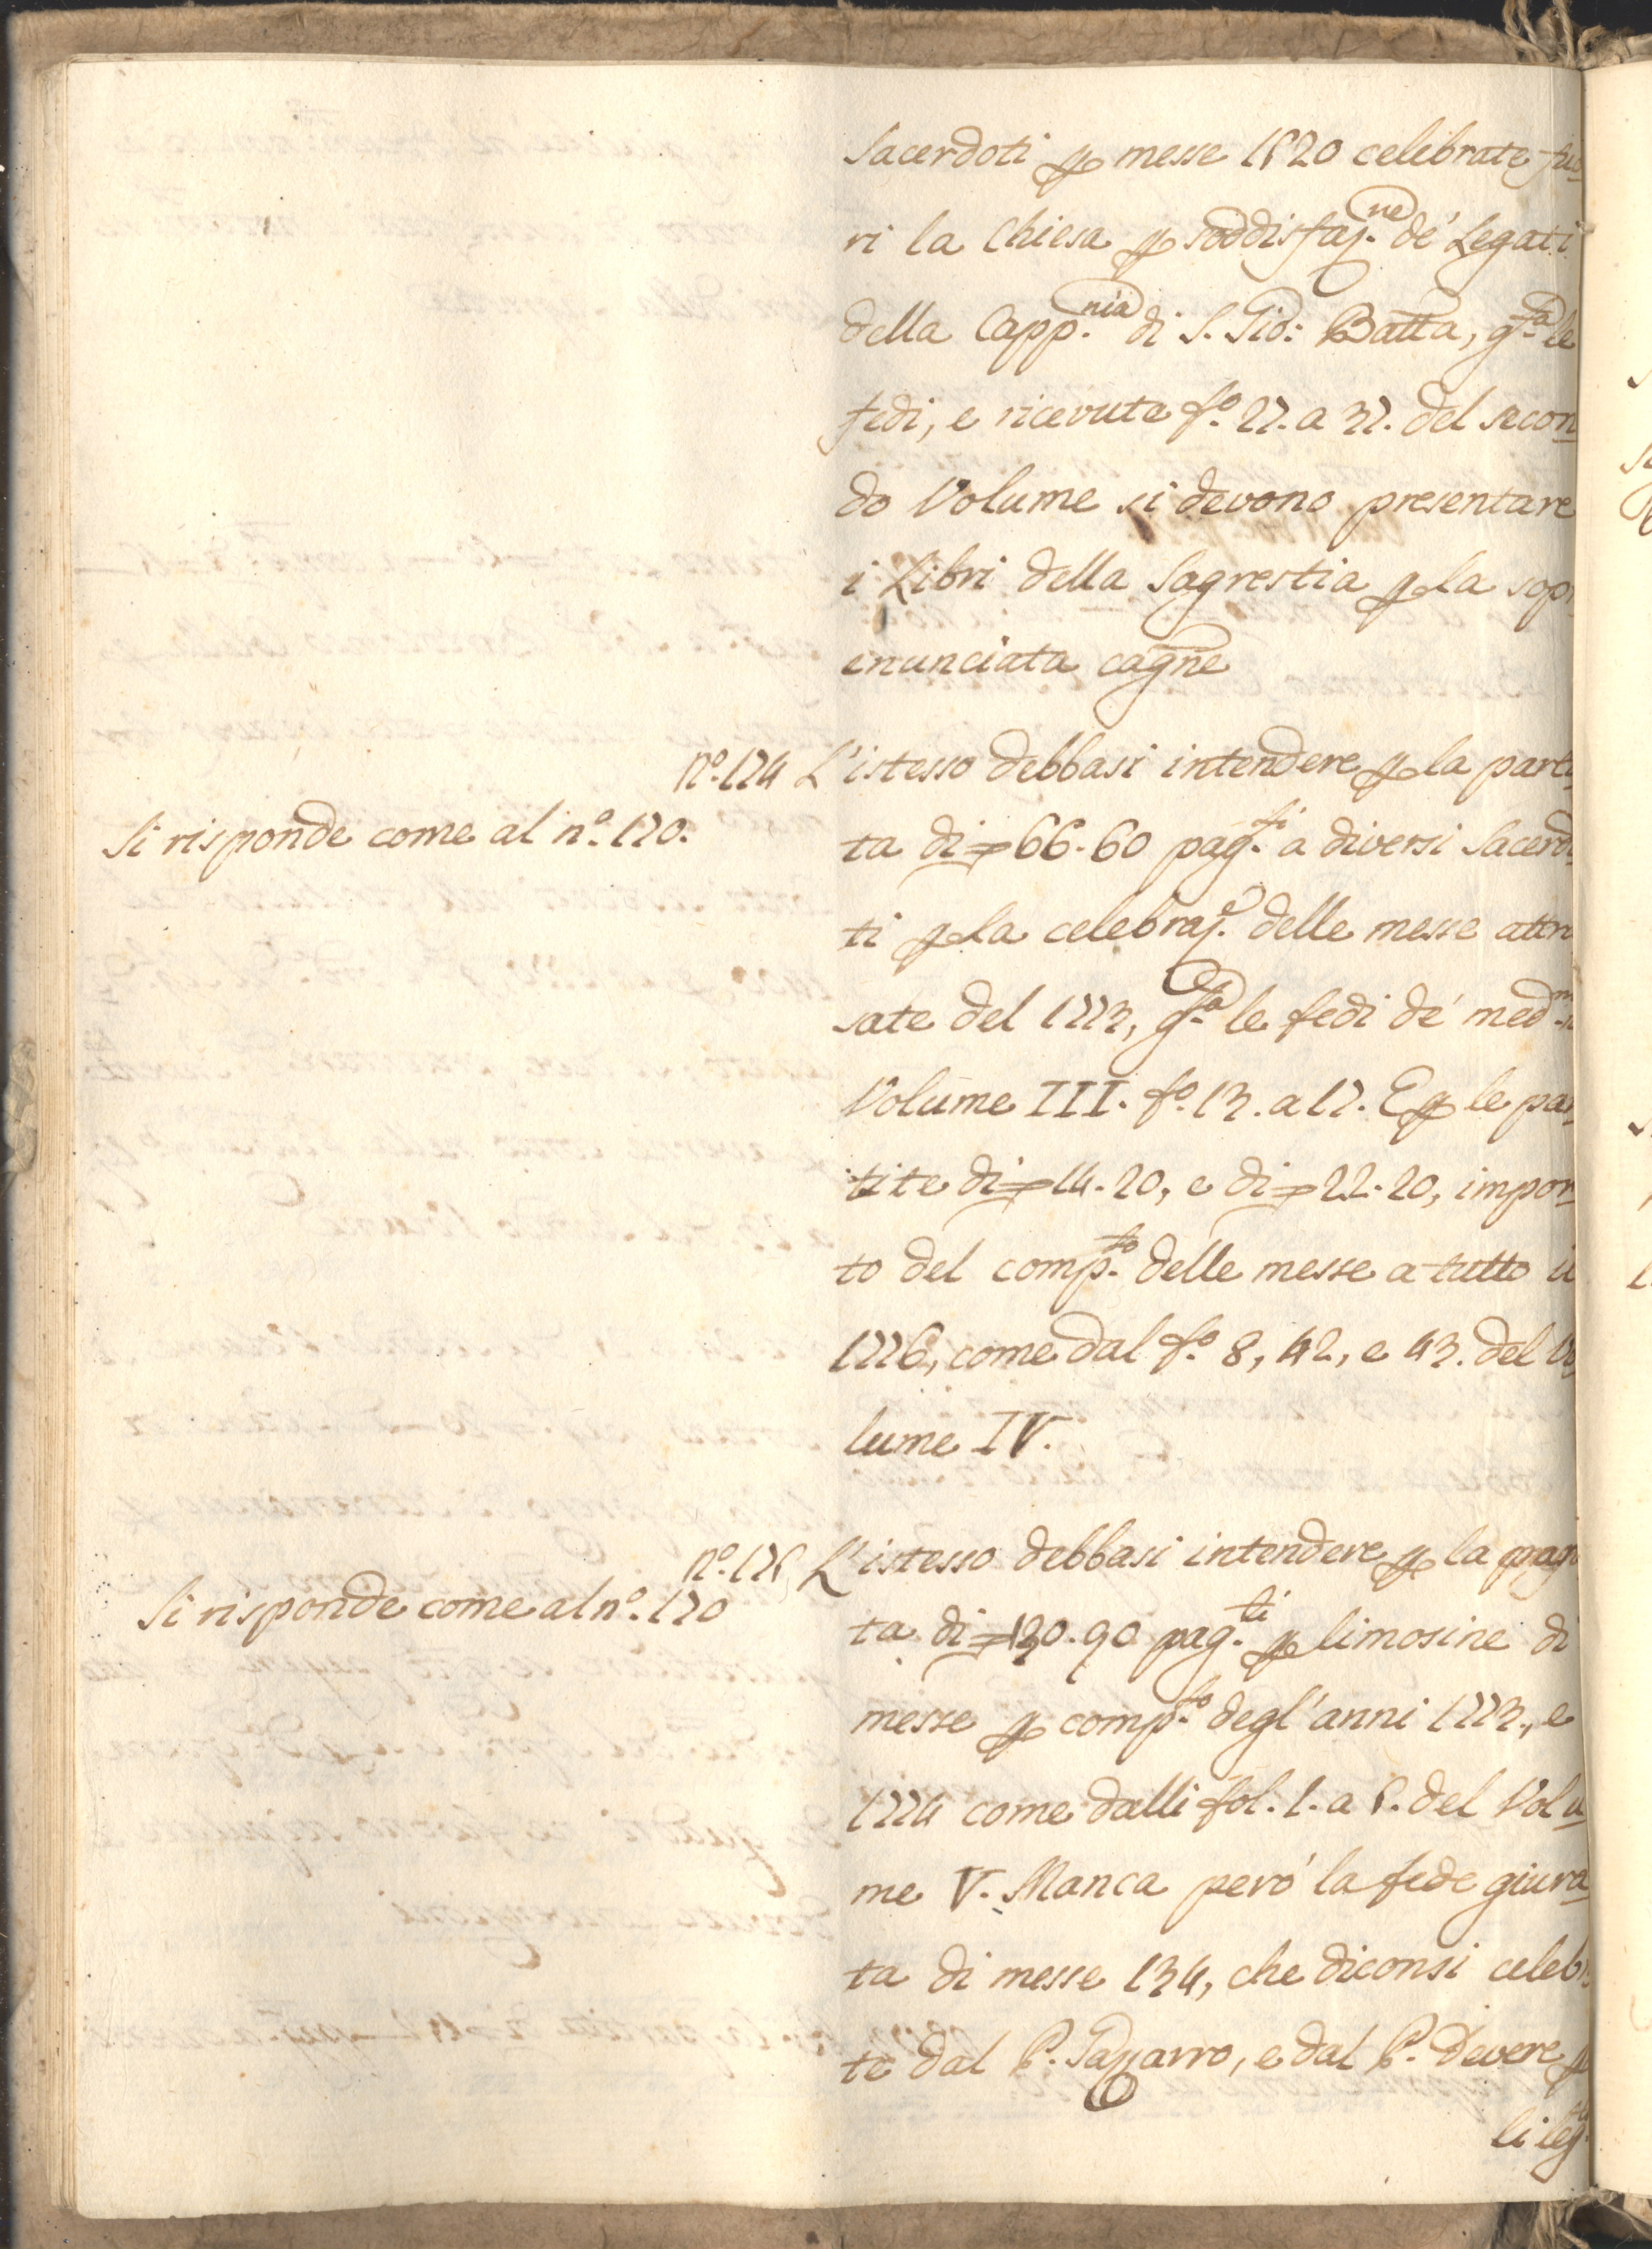 Sacerdoti p messe 1520 celebrate fuo
ri la Chiesa p soddisfaz.ne de' Legati
della Capp.nia di S. Gio: Batta, g.ta le
fedi, e ricevute f.o 27. a 37. del secon
do Volume si devono presentare
i Libri della Sagrestia p la sopr
enunciata cagne
N.o 174 L'istesso debbasi intendere p la parti
Si risponde come al n.o 170.
ta di 66.60 pag.ti a diversi Sacerdo
ti p la celebraz.e delle messe attra
sate del 1773, g.ta le fedi de' med.mi
Volume III. f.o 13. a 17. E p le par
tite di 14.20, e di 22.20, impor
to del comp.to delle messe a tutto il
1776, come dal f.o 8, 42, e 43. del Vo
lume IV.
N.o 175 L'istesso debbasi intendere p la
Si risponde come al n.o 170
ta di 130.90 pag.ti p limosine di
messe p comp.to degl'anni 1773, e
1774 come dalli fol. 1. a 5. del Volu
me V. Manca però la fede giura
ta di messe 134, che diconsi celebra
te dal P. Pazzarro, e dal P. Devere p
li leg.ti